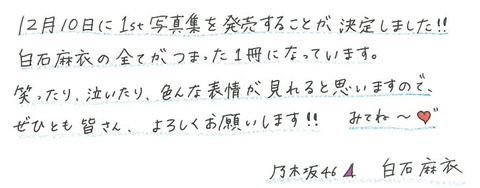 12月10日に1st写真集を発売することが決定しました!!
白石麻衣の全てがつまった1冊になっています。
笑ったり、泣いたり、色んな表情が見れると思いますので、
ぜひとも皆さん、よろしくお願いします!! みてね〜♥
乃木坂46 白石麻衣